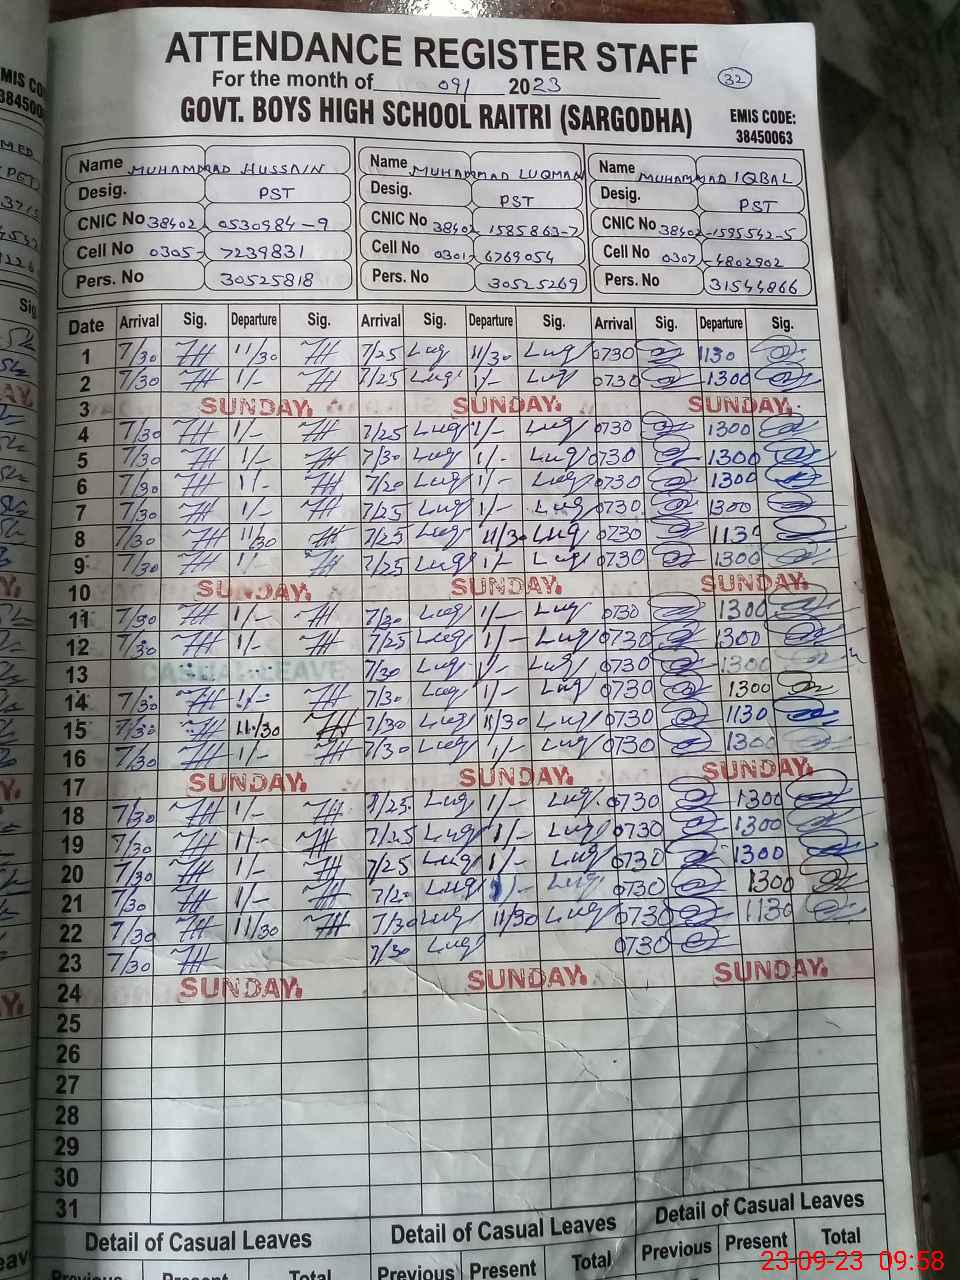 ATTENDANCE REGISTER STAFF
For the month of 09/ 2023
32
GOVT. BOYS HIGH SCHOOL RAITRI (SARGODHA)
EMIS CODE:
38450063
Name MUHAMMAD HUSSAIN Name MUHAMMAD LUQMAN Name MUHAMMAD IQBAL
Desig. PST Desig. PST Desig. PST
CNIC No 38402 0530984-9 CNIC No 38402 1585863-7 CNIC No 38402-1595542-5
Cell No 0305- 7239831 Cell No 0301- 6769054 Cell No 0307-4802902
Pers. No 30525818 Pers. No 30525269 Pers. No 31544866
Date Arrival Sig. Departure Sig. Arrival Sig. Departure Sig. Arrival Sig. Departure Sig.
1 7/30 11/30 7/25 Luq 11/30 Luq 0730 1130
2 7/30 1/- 7/25 Luq 1/- Luq 0730 1300
3 SUNDAY. SUNDAY. SUNDAY.
4 7/30 1/- 7/25 Luq 1/- Luq 0730 1300
5 7/30 1/- 7/30 Luq 1/- Luq 0730 1300
6 7/30 1/- 7/20 Luq 1/- Luq 0730 1300
7 7/30 1/- 7/25 Luq 1/- Luq 0730 1300
8 7/30 11/30 7/25 Luq 11/30 Luq 0730 1130
9 7/30 1/- 7/25 Luq 1/- Luq 0730 1300
10 SUNDAY. SUNDAY. SUNDAY.
11 7/30 1/- 7/30 Luq 1/- Luq 0730 1300
12 7/30 1/- 7/25 Luq 1/- Luq 0730 1300
13 CASUAL LEAVE 7/30 Luq 1/- Luq 0730 1300
14 7/30 1/- 7/30 Luq 1/- Luq 0730 1300
15 7/30 11/30 7/30 Luq 11/30 Luq 0730 1130
16 7/30 1/- 7/30 Luq 1/- Luq 0730 1300
17 SUNDAY. SUNDAY. SUNDAY.
18 7/30 1/- 7/25 Luq 1/- Luq 0730 1300
19 7/30 1/- 7/25 Luq 1/- Luq 0730 1300
20 7/30 1/- 7/25 Luq 1/- Luq 0730 1300
21 7/30 1/- Luq 1/- Luq 0730 1300
22 7/30 11/30 7/30 Luq 11/30 Luq 0730 1130
23 7/30 7/30 Luq 0730
24 SUNDAY. SUNDAY. SUNDAY.
25
26
27
28
29
30
31
Detail of Casual Leaves Detail of Casual Leaves Detail of Casual Leaves
Previous Present Total Previous Present Total Previous Present Total
23-09-23 09:58